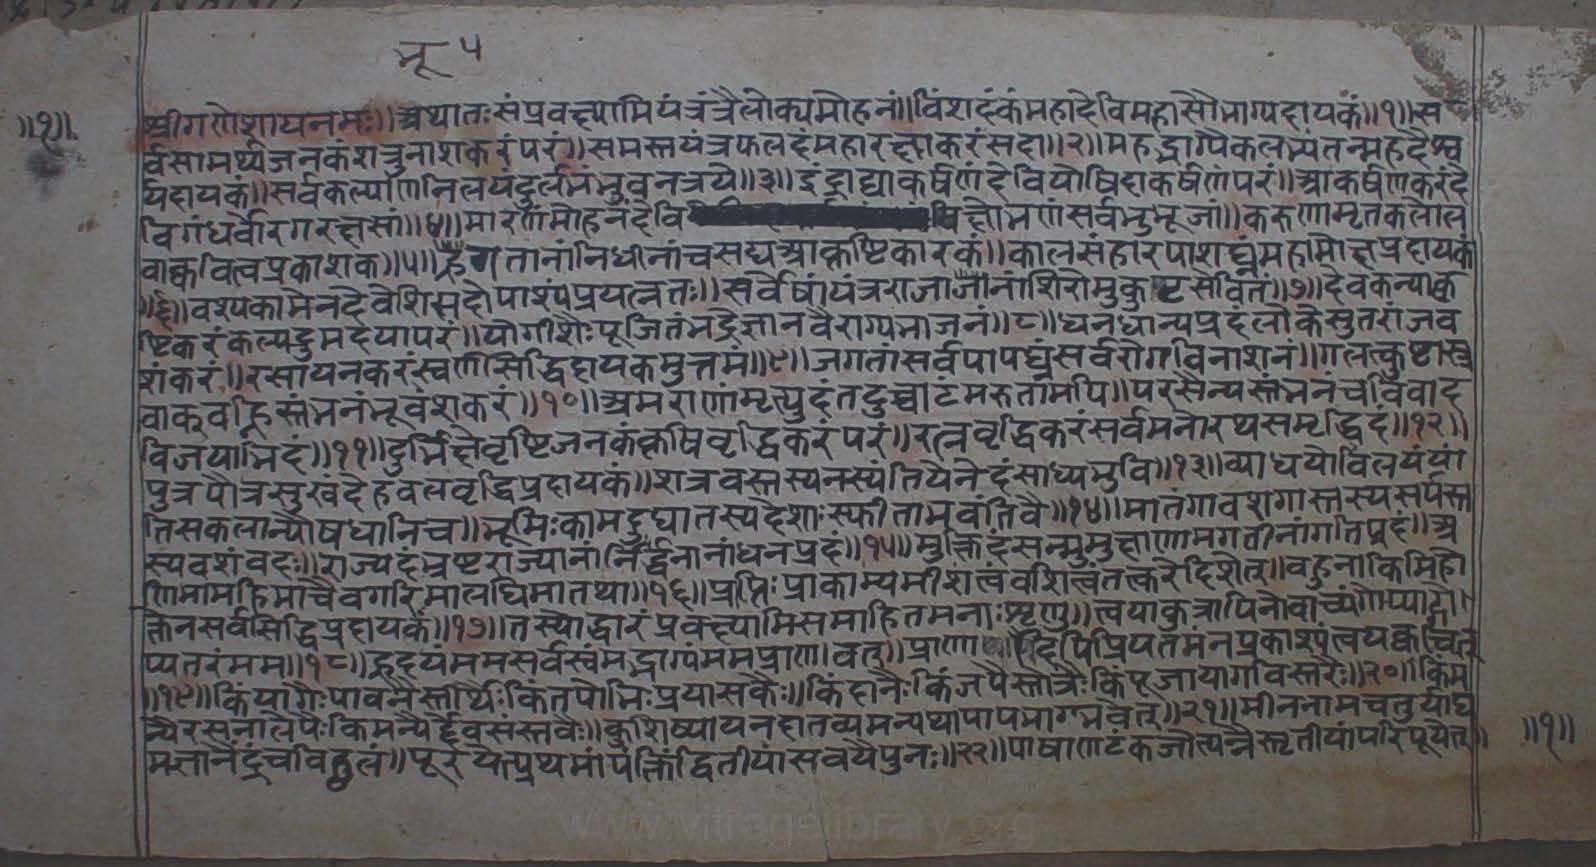 भू ५
॥१॥ श्रीगणेशायनमः॥अथातःसंप्रवक्ष्यामियंत्रंत्रैलोक्यमोहनं॥विंशदंकंमहादेविमहासौभाग्यदायकं॥१॥स
र्वसामर्थ्यजनकंशत्रुनाशकरंपरं॥समस्तयंत्रफलदंमहारक्षाकरंसदा॥२॥महद्भाग्यैकलभ्यंतन्महदैश्व
र्यदायकं॥सर्वकल्याणनिलयंदुर्लभंभुवनत्रये॥३॥इंद्राद्याकर्षणंदेवियोषिदाकर्षणंपरं॥आकर्षणकरंदे
विगंधर्वोरगरक्षसां॥४॥मारणंमोहनंदेवि विक्षोभणंसर्वभुभूजां॥करुणामृतकलोल
वाक्कवित्वप्रकाशक॥५॥ गतानांनिधीनांचसद्यआकृष्टिकारकं॥कालसंहारपाशघ्नंमहामोक्षप्रदायकं
॥६॥वश्यकामेन सर्वेषांयंत्रराजा शिरोमुकु सेवितं॥७॥देवकन्याकृ
ष्टिकरंकल्पद्रुम योगीशैःपूजितंभद्रेज्ञानवैराग्यभाजनं॥८॥धनधान्यप्रदंलोकेसुतरांजव
शंकरं॥रसायनकरंस्वर्णसिद्धिदायकमुत्तमं॥९॥जगतांसर्वपापघ्नंसर्वरोगविनाशनं॥गलत्कुष्टा
वाक्वह्निस्तंभनंभूवंशकरं॥१०॥अमराणांमृत्युदंतदुच्चाटंमरुतामपि॥परसैन्यस्तंभनंचविवाद
विजयाभिदं॥११॥दुर्भिक्षेवृष्टिजनकंकृषिवृद्धिकरंपरं॥रत्नवृद्धिकरंसर्वमनोरथसमृद्धिदं॥१२॥
पुत्रपौत्रसुखंदेहवलवृद्धिप्रदायकं॥शत्रवस्तस्यनस्यंतियेनेदंसाध्यभुवि॥१३॥व्याधयोविलयंयां
तिसकलान्यौषधानिच॥भूमिःकामदुघातस्यदेशाःस्फीताभवंतिवै॥१४॥मातगावशगास्तस्यसर्पस्त
स्यवशंवदः॥राज्यदंभ्रष्टराज्यानांनिर्द्धनानांधनप्रदं॥१५॥मुक्तिदंसन्मुमुक्षाणामगतीनांगतिप्रदं॥अ
णिमामहिमाचैवगरिमालघिमातथा॥१६॥प्राप्तिःप्राकाम्यमीशत्वंवशित्वंतत्करेदिशेत्॥वहुनाकिमिहो
क्तेनसर्वसिद्धिप्रदायकं॥१७॥तस्योद्धारंप्रवक्ष्यामिसमाहितमनाःशृणु॥त्वयाकुत्रापिनोवाच्यंगोप्याद्गो
प्यतरंमम॥१८॥हृदयंममसर्वस्वंमद्भाग्यंममप्राणवत्॥प्राणा पिप्रियतमनप्रकाश्यंत्वयाक्वचित्
॥१९॥किंयागैःपावनैस्तीर्थैःकिंतपोभिःप्रयासकैः॥किंदानैःकिंजपैस्तोत्रैःकिंपूजायागविस्तरैः॥२०॥किम
न्यैरसनालेपैःकिमन्यैर्देवसंस्तवैः॥कुशिष्यायनदातव्यमन्यथापापभाग्भवेत्॥२१॥मीननामचतुर्याद्य
मज्ञानेंद्रंचविठ्ठलं॥पूरयेत्प्रथमांपंक्तिंद्वितीयांसवयैपुनः॥२२॥पाषाणटंकजोत्पन्नैस्तृतीयांपरिपूयेत्॥ ॥१॥
www.vitragelibrary.org